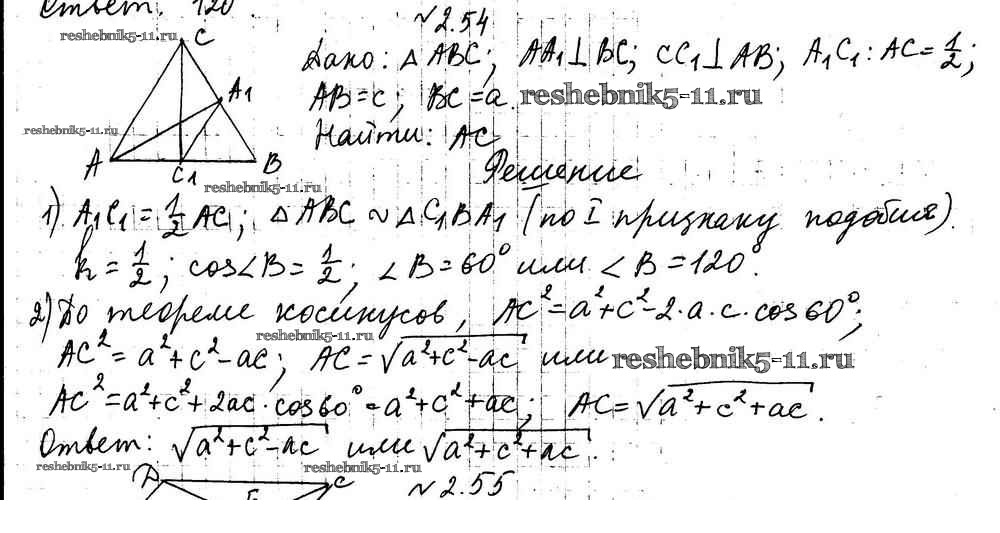 Ответ: 120°.
№2.54
resheb­nik5-11.ru
C
Дано: △ABC; AA₁⊥BC; CC₁⊥AB; A₁C₁:AC=1/2;
A₁
AB=c; BC=a.
reshebnik5-11.ru
reshebnik5-11.ru
Найти: AC
A
C₁
B
Решение
reshebnik5-11.ru
1) A₁C₁=1/2 AC; △ABC ~ △C₁BA₁ (по I признаку подобия).
k=1/2; cos∠B=1/2; ∠B=60° или ∠B=120°.
2) По теореме косинусов, AC²=a²+c²-2·a·c·cos60°;
reshebnik5-11.ru
AC²=a²+c²-ac; AC=√a²+c²-ac или
reshebnik5-11.ru
AC²=a²+c²+2ac·cos60°=a²+c²+ac; AC=√a²+c²+ac.
Ответ: √a²+c²-ac или √a²+c²+ac.
reshebnik5-11.ru
reshebnik5-11.ru
C
№2.55